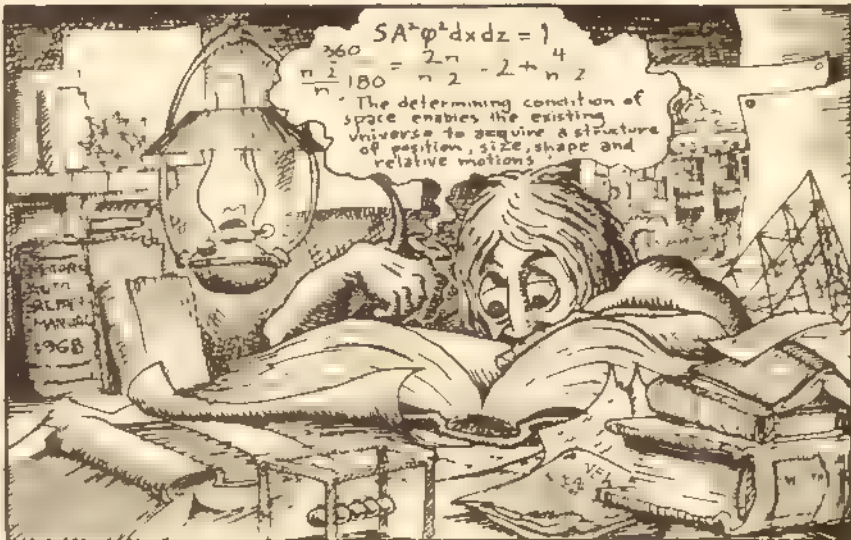 SA²φ²dxdz = 1
360
n 2/n 180 = 2n/n 2 - 2 + 4/n 2
"The determining condition of
space enables the existing
universe to acquire a structure
of position, size, shape and
relative motions
MANUAL
1968